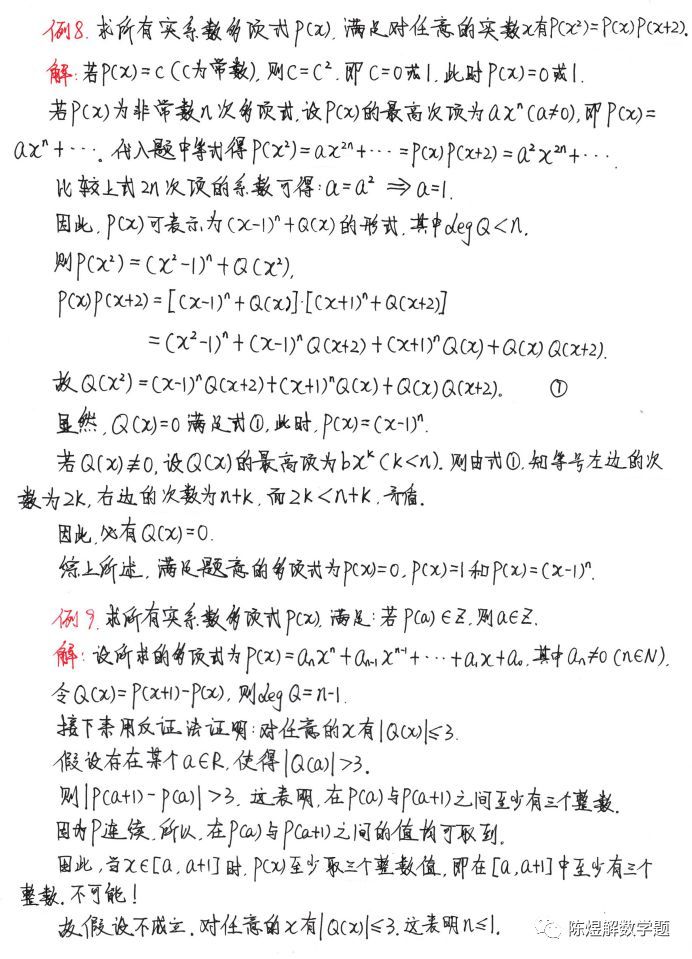 例8. 求所有实系数多项式P(x), 满足对任意的实数x有P(x²)=P(x)P(x+2).
解: 若P(x)=c (c为常数), 则c=c². 即 c=0或1. 此时 P(x)=0或1.
若P(x)为非常数n次多项式, 设P(x)的最高次项为axⁿ(a≠0), 即P(x)=
axⁿ+⋯. 代入题中等式得P(x²)=ax²ⁿ+⋯=P(x)P(x+2)=a²x²ⁿ+⋯.
比较上式2n次项的系数可得: a=a² ⇒ a=1.
因此, P(x)可表示为(x-1)ⁿ+Q(x)的形式, 其中degQ<n.
则P(x²)=(x²-1)ⁿ+Q(x²),
P(x)P(x+2)=[(x-1)ⁿ+Q(x)]·[(x+1)ⁿ+Q(x+2)]
=(x²-1)ⁿ+(x-1)ⁿQ(x+2)+(x+1)ⁿQ(x)+Q(x)Q(x+2).
故Q(x²)=(x-1)ⁿQ(x+2)+(x+1)ⁿQ(x)+Q(x)Q(x+2). ①
显然, Q(x)=0满足式①, 此时, P(x)=(x-1)ⁿ.
若Q(x)≢0, 设Q(x)的最高项为bxᵏ(k<n). 则由式①, 知等号左边的次
数为2k, 右边的次数为n+k, 而2k<n+k, 矛盾.
因此, 必有Q(x)=0.
综上所述, 满足题意的多项式为P(x)=0, P(x)=1和P(x)=(x-1)ⁿ.
例9. 求所有实系数多项式P(x), 满足: 若P(a)∈Z, 则a∈Z.
解: 设所求的多项式为P(x)=aₙxⁿ+aₙ₋₁xⁿ⁻¹+⋯+a₁x+a₀, 其中aₙ≠0(n∈N).
令Q(x)=P(x+1)-P(x), 则degQ=n-1.
接下来用反证法证明: 对任意的x有|Q(x)|≤3.
假设存在某个a∈R, 使得|Q(a)|>3.
则|P(a+1)-P(a)|>3, 这表明, 在P(a)与P(a+1)之间至少有三个整数.
因为P连续, 所以, 在P(a)与P(a+1)之间的值均可取到.
因此, 当x∈[a,a+1]时, P(x)至少取三个整数值, 即在[a,a+1]中至少有三个
整数, 不可能!
故假设不成立, 对任意的x有|Q(x)|≤3. 这表明n≤1.
陈煜解数学题